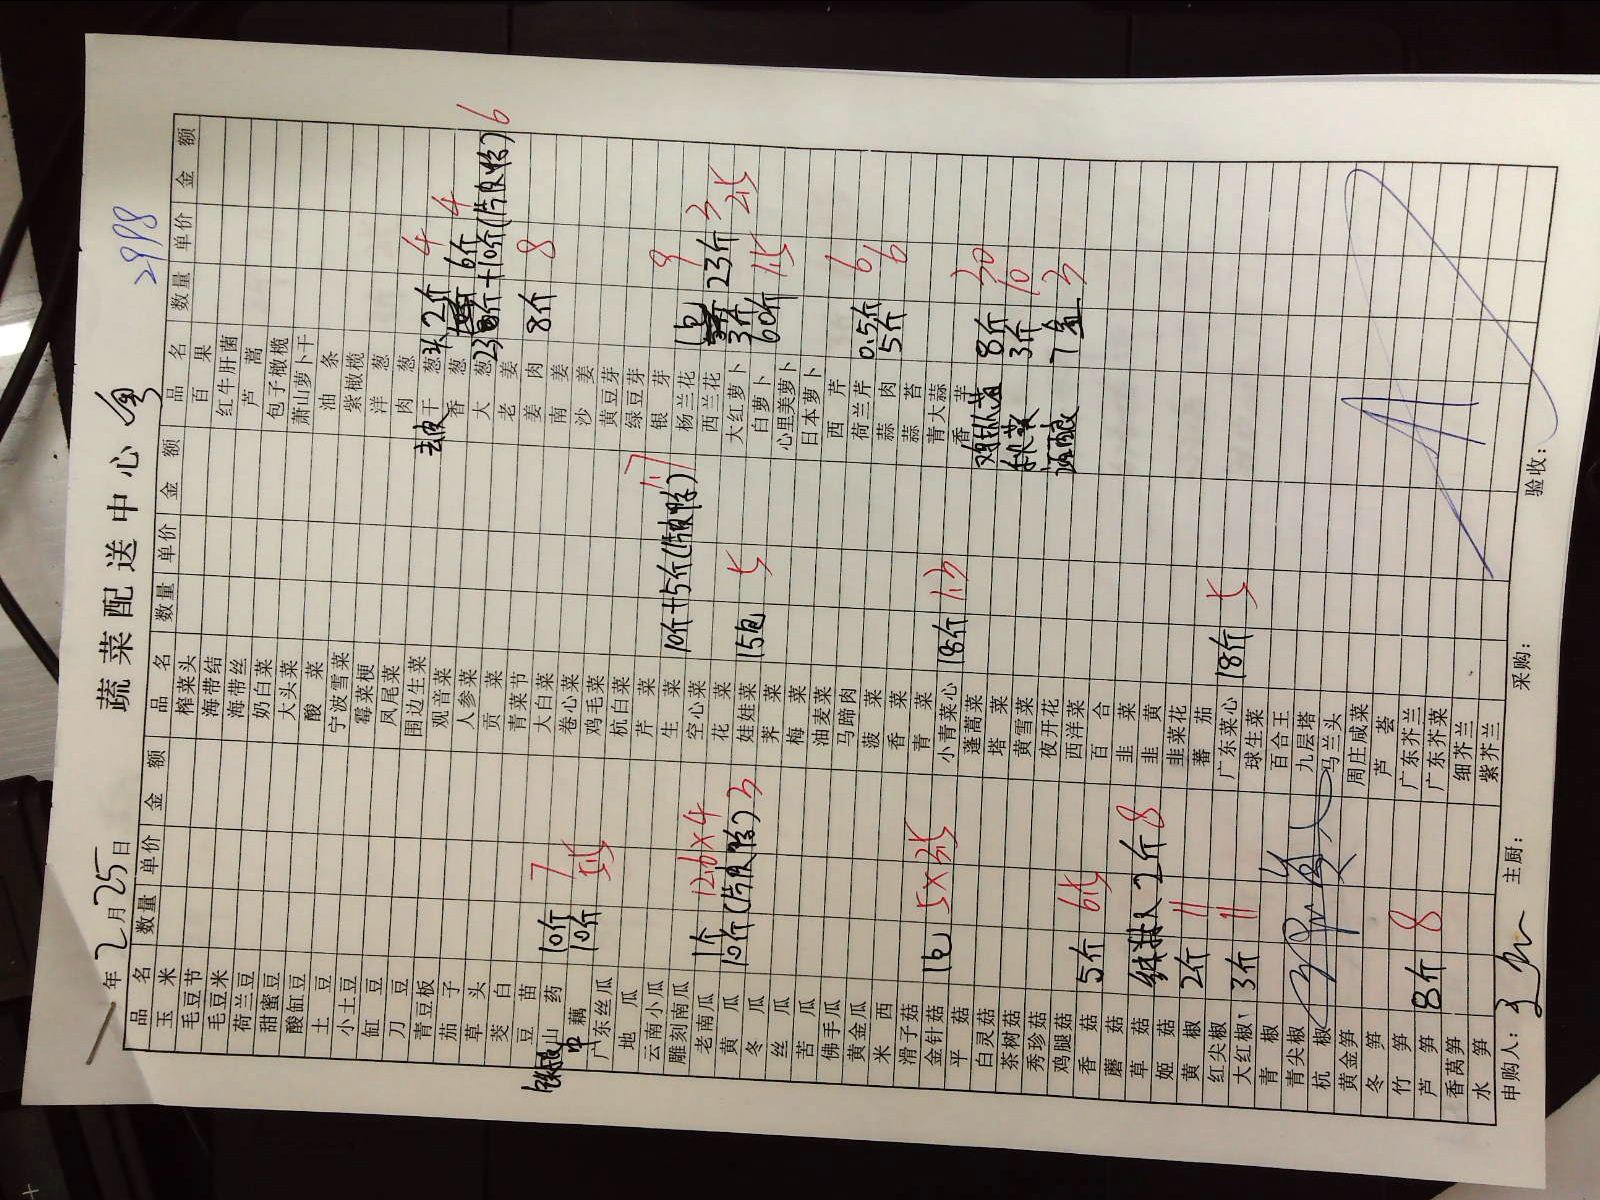 蔬菜配送中心
2998
年2月25日
品名 数量 单价 金额 品名 数量 单价 金额 品名 数量 单价 金额
玉米
毛豆节
毛豆米
荷兰豆
甜蜜豆
酸缸豆
土豆
小土豆
缸豆
刀豆
青豆板
茄子
草头
茭白
豆苗
山药 10斤 7
藕 10斤
广东丝瓜
地瓜
云南小瓜
雕刻南瓜
老南瓜 1个 12.6×4
黄瓜 10斤 3
冬瓜
丝瓜
苦瓜
佛手瓜
黄金瓜
米西
滑子菇
金针菇 1包
平菇
白灵菇
茶树菇
秀珍菇
鸡腿菇
香菇 5斤
蘑菇
草菇 2斤 8
姬菇
黄椒 2斤 11
红尖椒
大红椒 3斤 11
青椒
青尖椒
杭椒
黄金笋
冬笋
竹笋
芦笋 8斤 8
香莴笋
水笋
榨菜头
海带结
海带丝
奶白菜
大头菜
酸菜
宁波雪菜
霉菜梗
凤尾菜
围边生菜
观音菜
人参菜
贡菜
青菜节
大白菜
卷心菜
鸡毛菜
杭白菜
芹菜
生菜 10斤+5斤
空心菜
花菜
娃娃菜 15包 5
荠菜
梅菜
油麦菜
马蹄肉
菠菜
香菜
青菜
小青菜心 18斤
蓬蒿菜
塔菜
黄雪菜
夜开花
西洋菜
百合
韭菜
韭黄
韭菜花
蕃茄
广东菜心 18斤 5
球生菜
百合王
九层塔
马兰头
周庄咸菜
芦荟
广东芥兰
广东芥菜
细芥兰
紫芥兰
百果
红牛肝菌
芦蒿
包子橄榄
萧山萝卜干
油条
紫橄榄
洋葱
肉葱
去皮干葱头 2斤 4
香葱 6斤 4
大葱
老姜
姜肉 8斤 8
南姜
沙姜
黄豆芽
绿豆芽
银芽
杨兰花 1包 9
西兰花 23斤 3
大红萝卜 3斤
白萝卜 60斤
心里美萝卜
日本萝卜
西芹
荷兰芹 0.5斤 6
蒜肉 5斤 6
蒜苔
青大蒜
香芋
8斤 30
秋葵 3斤 10
7盒 3
申购人：
主厨：
采购：
验收：